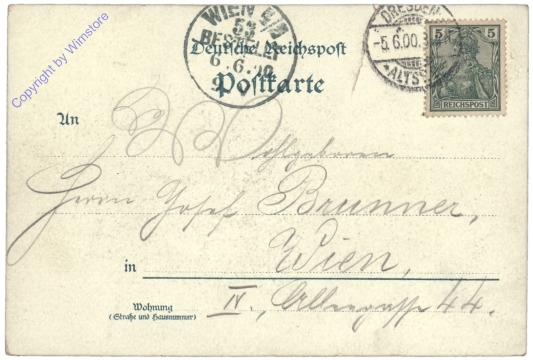 Copyright by Wimstore
WIEN
BESTELLT
6.6.00
DRESDEN
-5.6.00.
ALTST
5 5
REICHSPOST
Deutsche Reichspost
Postkarte
An
Wohlgeboren
Herrn Josef Brunner,
Wien,
in
Wohnung
(Straße und Hausnummer)
IV., Alleegasse 44.